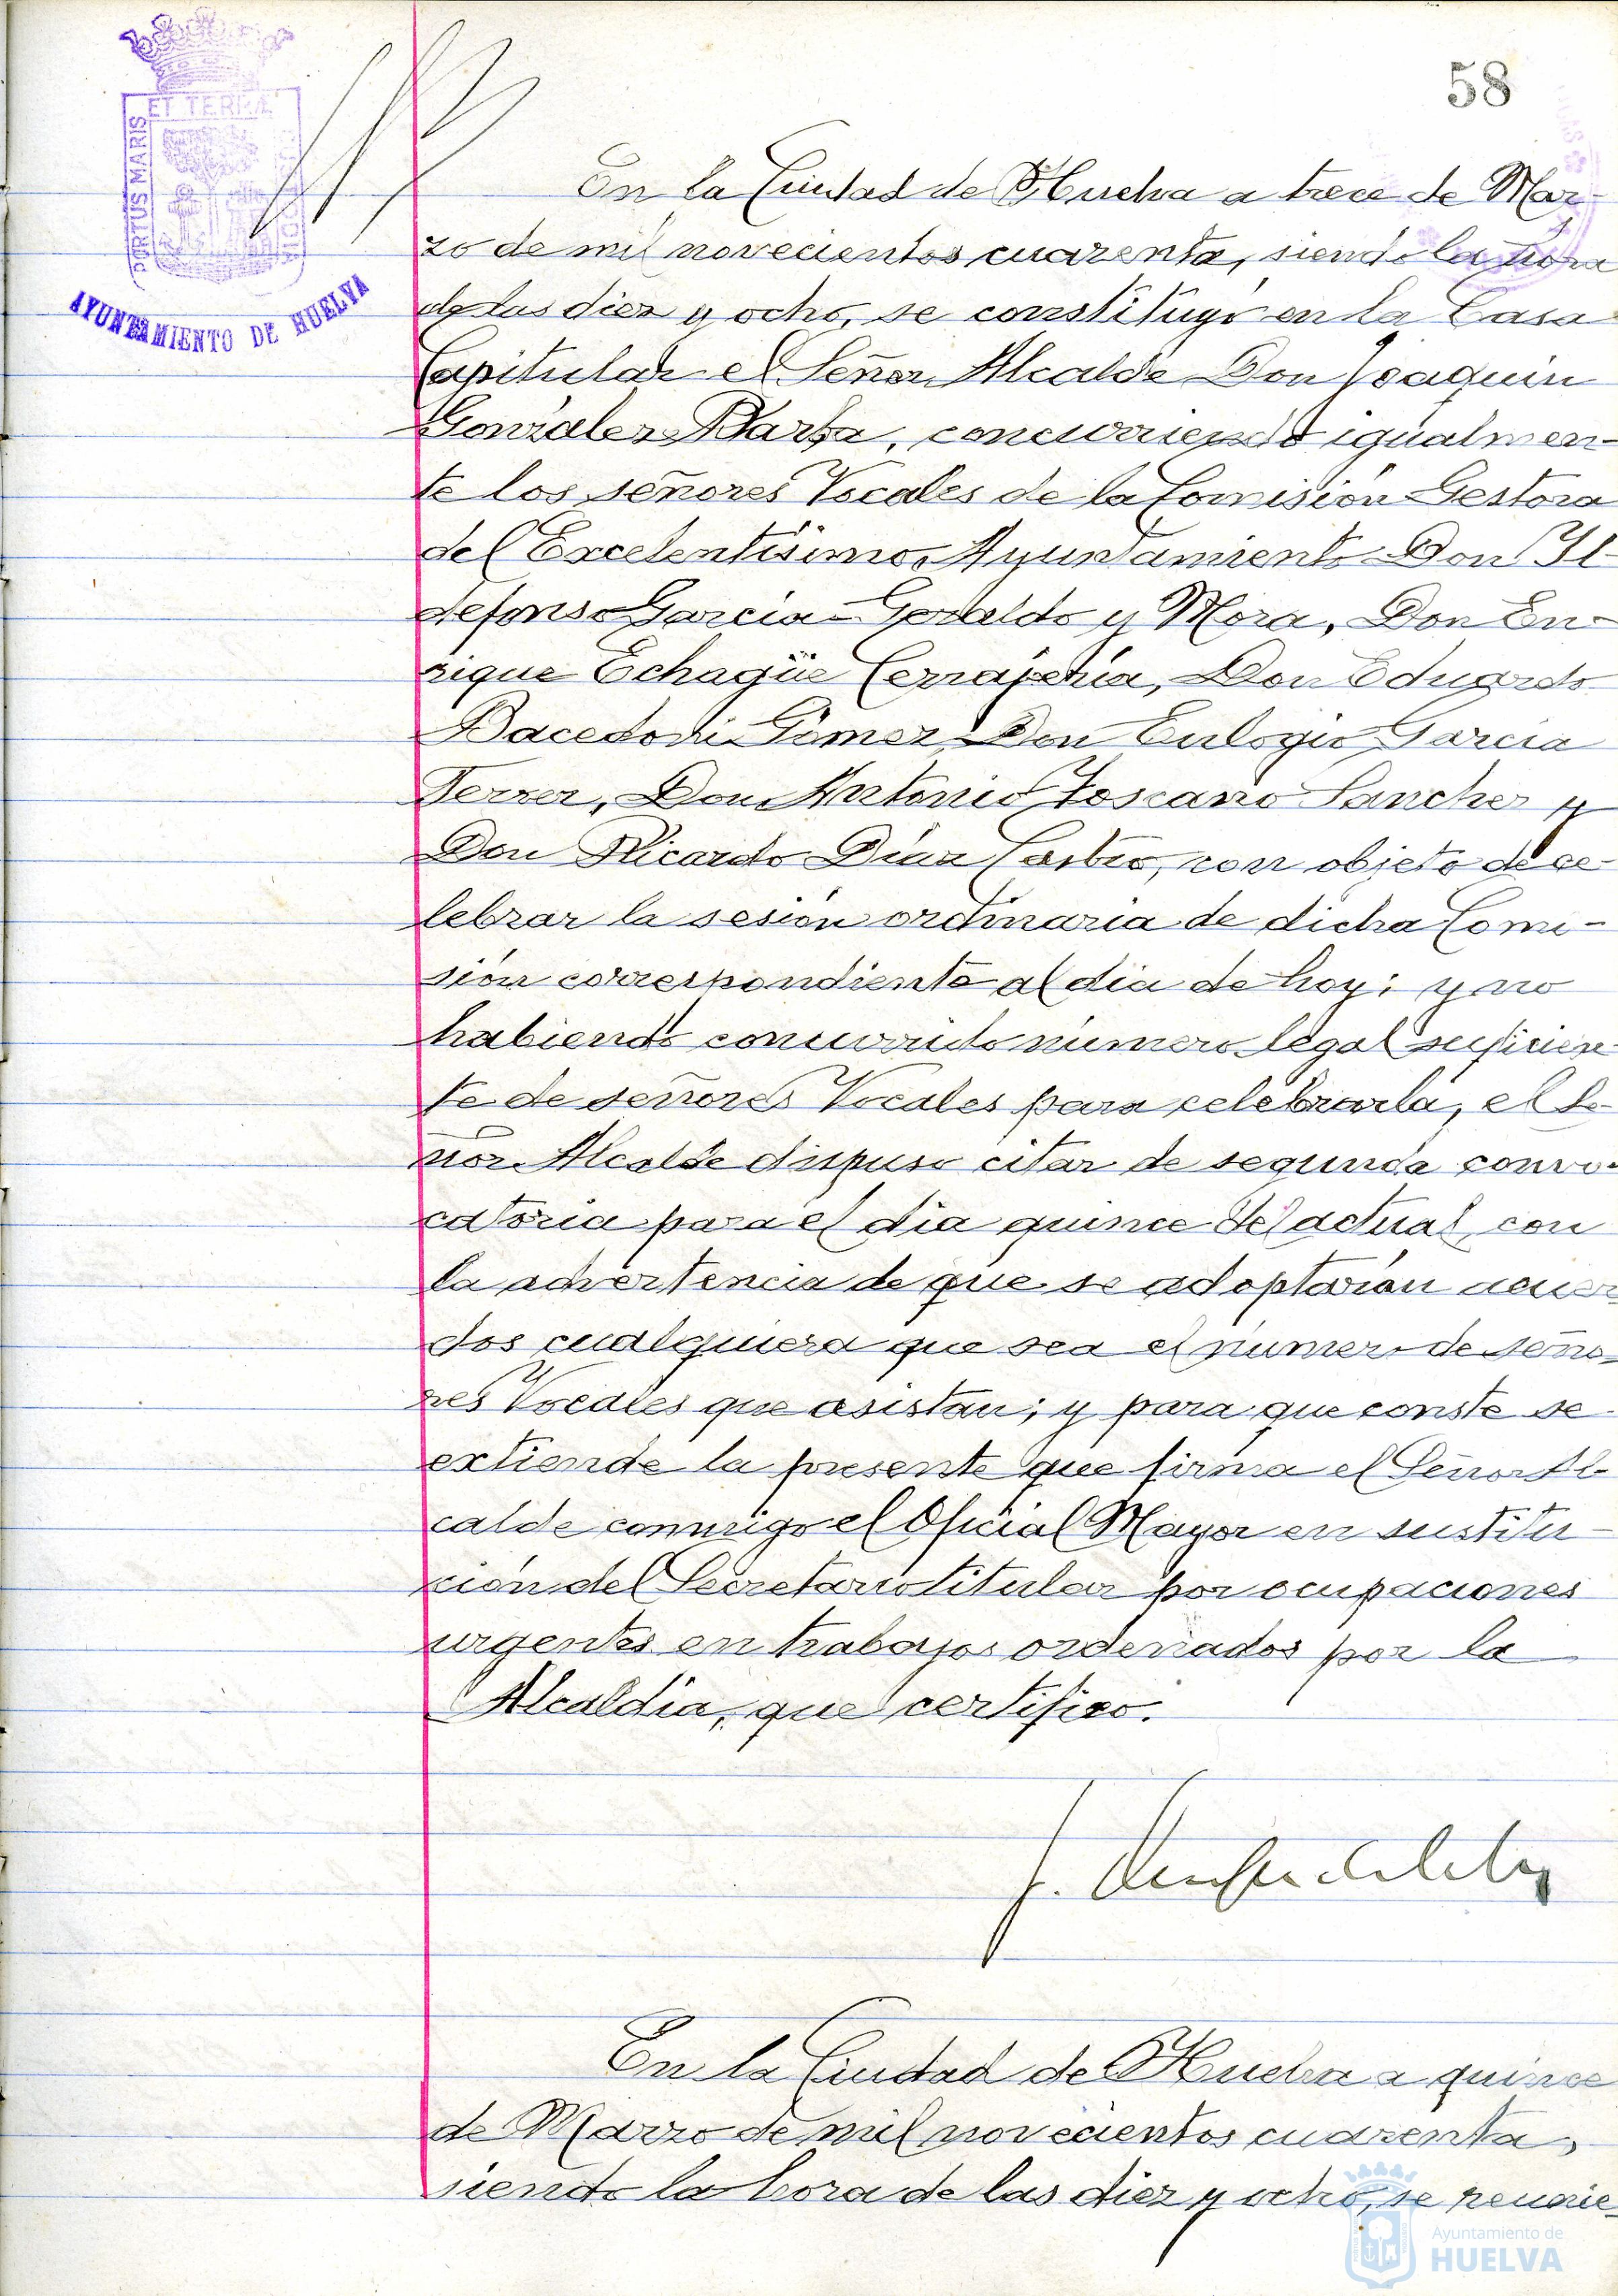 58
ET TERRÆ
PORTUS MARIS
AYUNTAMIENTO DE HUELVA
En la Ciudad de Huelva a trece de Mar-
zo de mil novecientos cuarenta, siendo la hora
de las diez y ocho, se constituyó en la Casa
Capitular el Señor Alcalde Don Joaquin
González Barba, concurriendo igualmen-
te los señores Vocales de la Comisión Gestora
del Excelentísimo Ayuntamiento Don Il-
defonso García-Geraldo y Mora, Don En-
rique Echagüe Cerrajería, Don Eduardo
Gómez, Don Eulogio García
Ferrer, Don Antonio Toscano Sanchez y
Don Ricardo Díaz Castro, con objeto de ce-
lebrar la sesión ordinaria de dicha Comi-
sión correspondiente al día de hoy; y no
habiendo concurrido número legal suficien-
te de señores Vocales para celebrarla, el Se-
ñor Alcalde dispuso citar de segunda convo-
catoria para el día quince del actual, con
la advertencia de que se adoptarían acuer-
dos cualquiera que sea el número de seño-
res Vocales que asistan; y para que conste se
extiende la presente que firma el Señor Al-
calde conmigo el Oficial Mayor en sustitu-
ción del Secretario titular por ocupaciones
urgentes en trabajos ordenados por la
Alcaldía, que certifico.
En la Ciudad de Huelva a quince
de Marzo de mil novecientos cuarenta,
siendo la hora de las diez y ocho, se reunie-
Ayuntamiento de
HUELVA